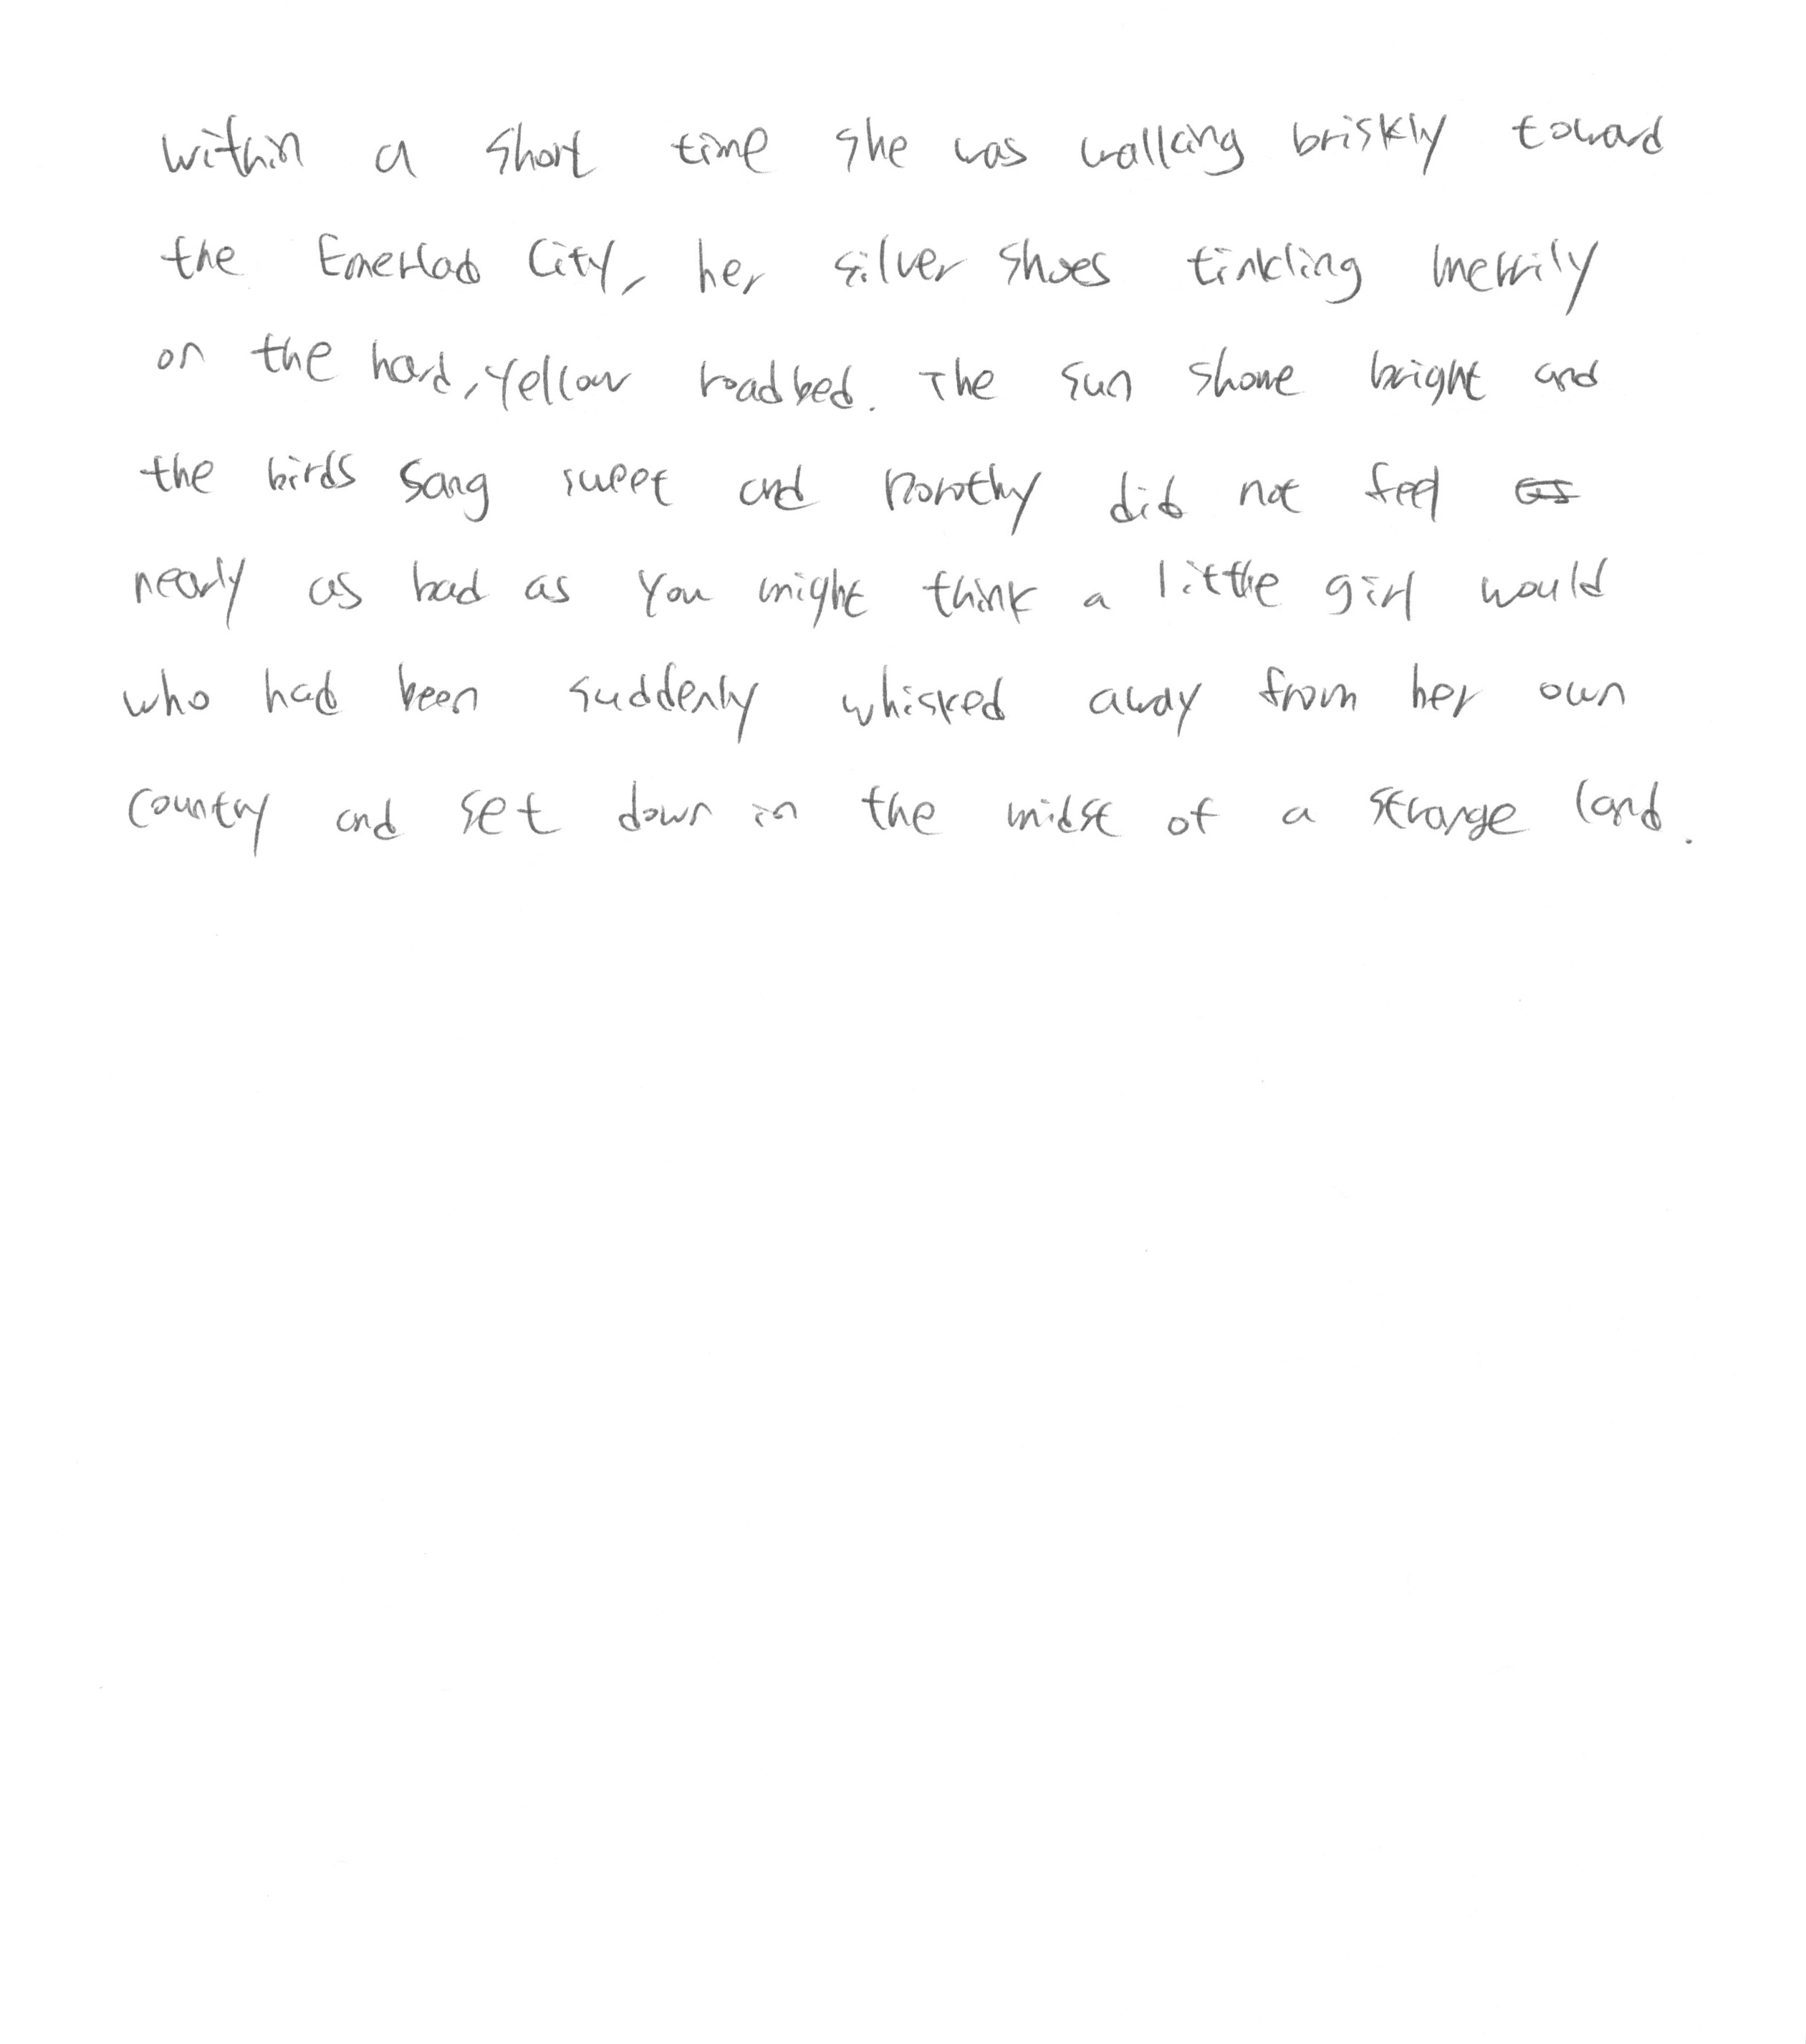 within a short time she was walking briskly toward
the Emerlad City, her silver shoes tinkling merrily
on the hard, yellow roadbed. The sun shone bright and
the birds sang sweet and Dorothy did not feel
nearly as bad as you might think a little girl would
who had been suddenly whisked away from her own
country and set down in the midst of a strange land.